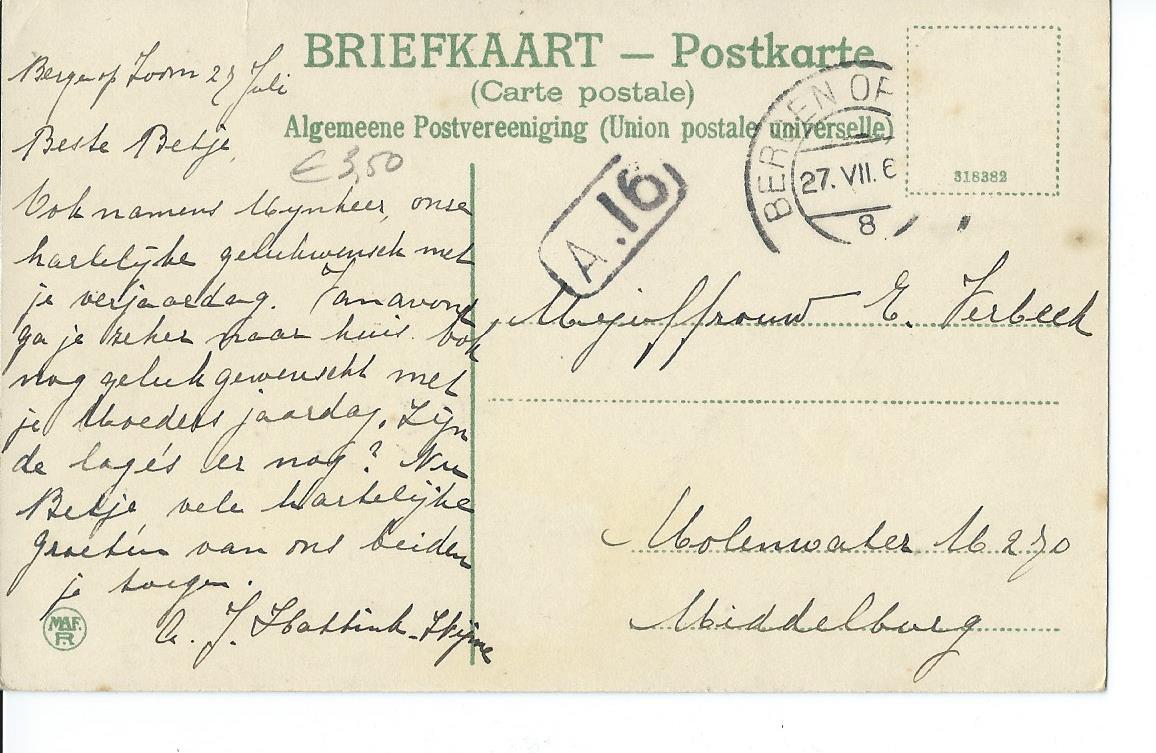 BRIEFKAART — Postkarte
(Carte postale)
Algemeene Postvereeniging (Union postale universelle)
318382
BERGEN OP
27. VII. 6
8
A.16
€ 3,50
Bergen op Zoom 27 Juli
Beste Betje,
Ook namens Mynheer, onse
hartelijke gelukwensch met
je verjaardag. Van avond
ga je zeker naar huis. Ook
nog geluk gewenscht met
je Moeders jaardag. Zijn
de logés er nog? Nu
Betje vele hartelijke
groeten van ons beiden
je
A. J.
Mejuffrouw E. Verbeek
Molenwater M 270
Middelburg
MAF.
R.